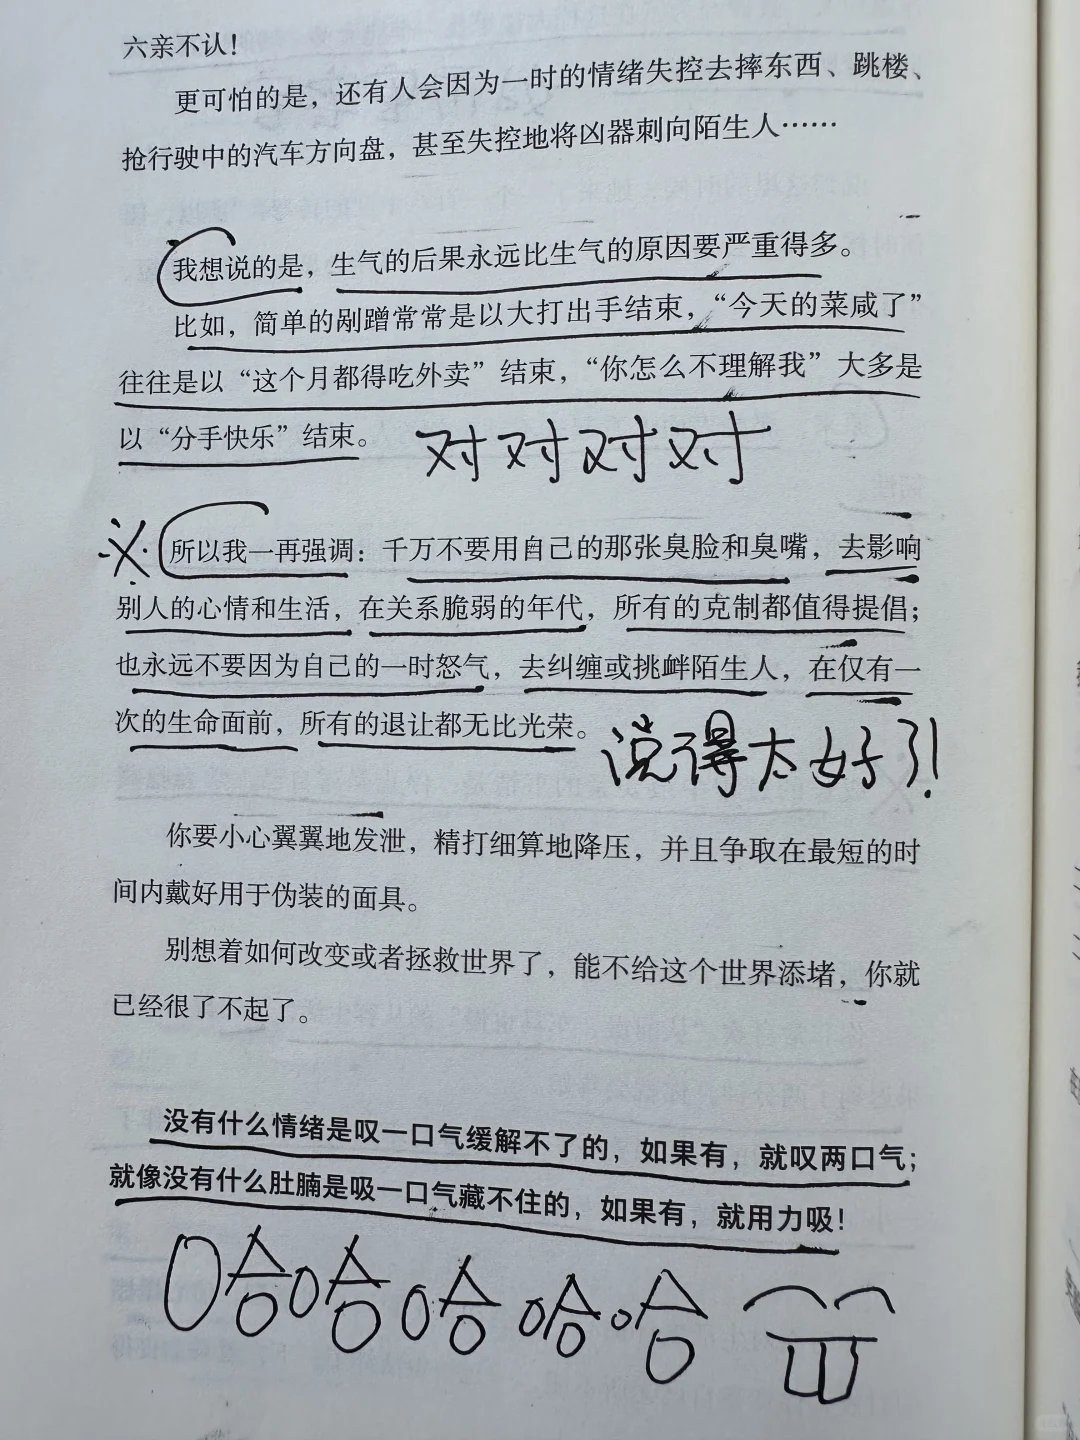 六亲不认！
更可怕的是，还有人会因为一时的情绪失控去摔东西、跳楼、
抢行驶中的汽车方向盘，甚至失控地将凶器刺向陌生人……
我想说的是，生气的后果永远比生气的原因要严重得多。
比如，简单的剐蹭常常是以大打出手结束，“今天的菜咸了”
往往是以“这个月都得吃外卖”结束，“你怎么不理解我”大多是
以“分手快乐”结束。
对对对对
所以我一再强调：千万不要用自己的那张臭脸和臭嘴，去影响
别人的心情和生活，在关系脆弱的年代，所有的克制都值得提倡；
也永远不要因为自己的一时怒气，去纠缠或挑衅陌生人，在仅有一
次的生命面前，所有的退让都无比光荣。
说得太好了！
你要小心翼翼地发泄，精打细算地降压，并且争取在最短的时
间内戴好用于伪装的面具。
别想着如何改变或者拯救世界了，能不给这个世界添堵，你就
已经很了不起了。
没有什么情绪是叹一口气缓解不了的，如果有，就叹两口气；
就像没有什么肚腩是吸一口气藏不住的，如果有，就用力吸！
哈哈哈哈哈